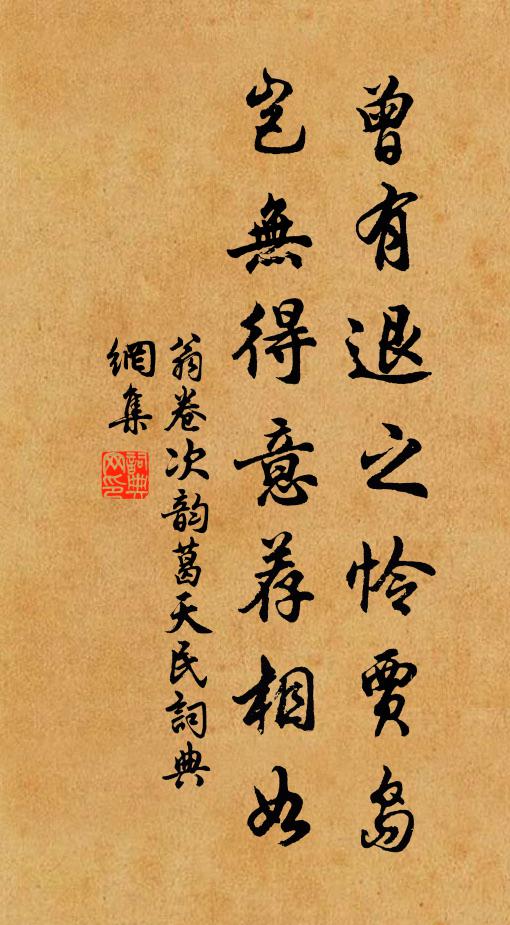 曾有退之怜贾岛
岂無得意荐相如
翁卷次韵葛天民詞典
網集
詞典網印